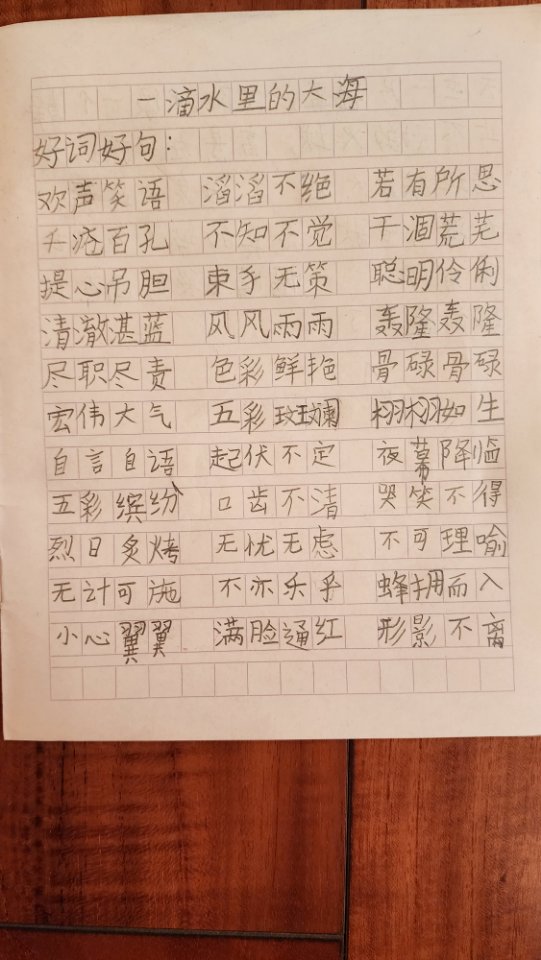 一滴水里的大海
好词好句：
欢声笑语 滔滔不绝 若有所思
千疮百孔 不知不觉 干涸荒芜
提心吊胆 束手无策 聪明伶俐
清澈湛蓝 风风雨雨 轰隆轰隆
尽职尽责 色彩鲜艳 骨碌骨碌
宏伟大气 五彩斑斓 栩栩如生
自言自语 起伏不定 夜幕降临
五彩缤纷 口齿不清 哭笑不得
烈日炙烤 无忧无虑 不可理喻
无计可施 不亦乐乎 蜂拥而入
小心翼翼 满脸通红 形影不离